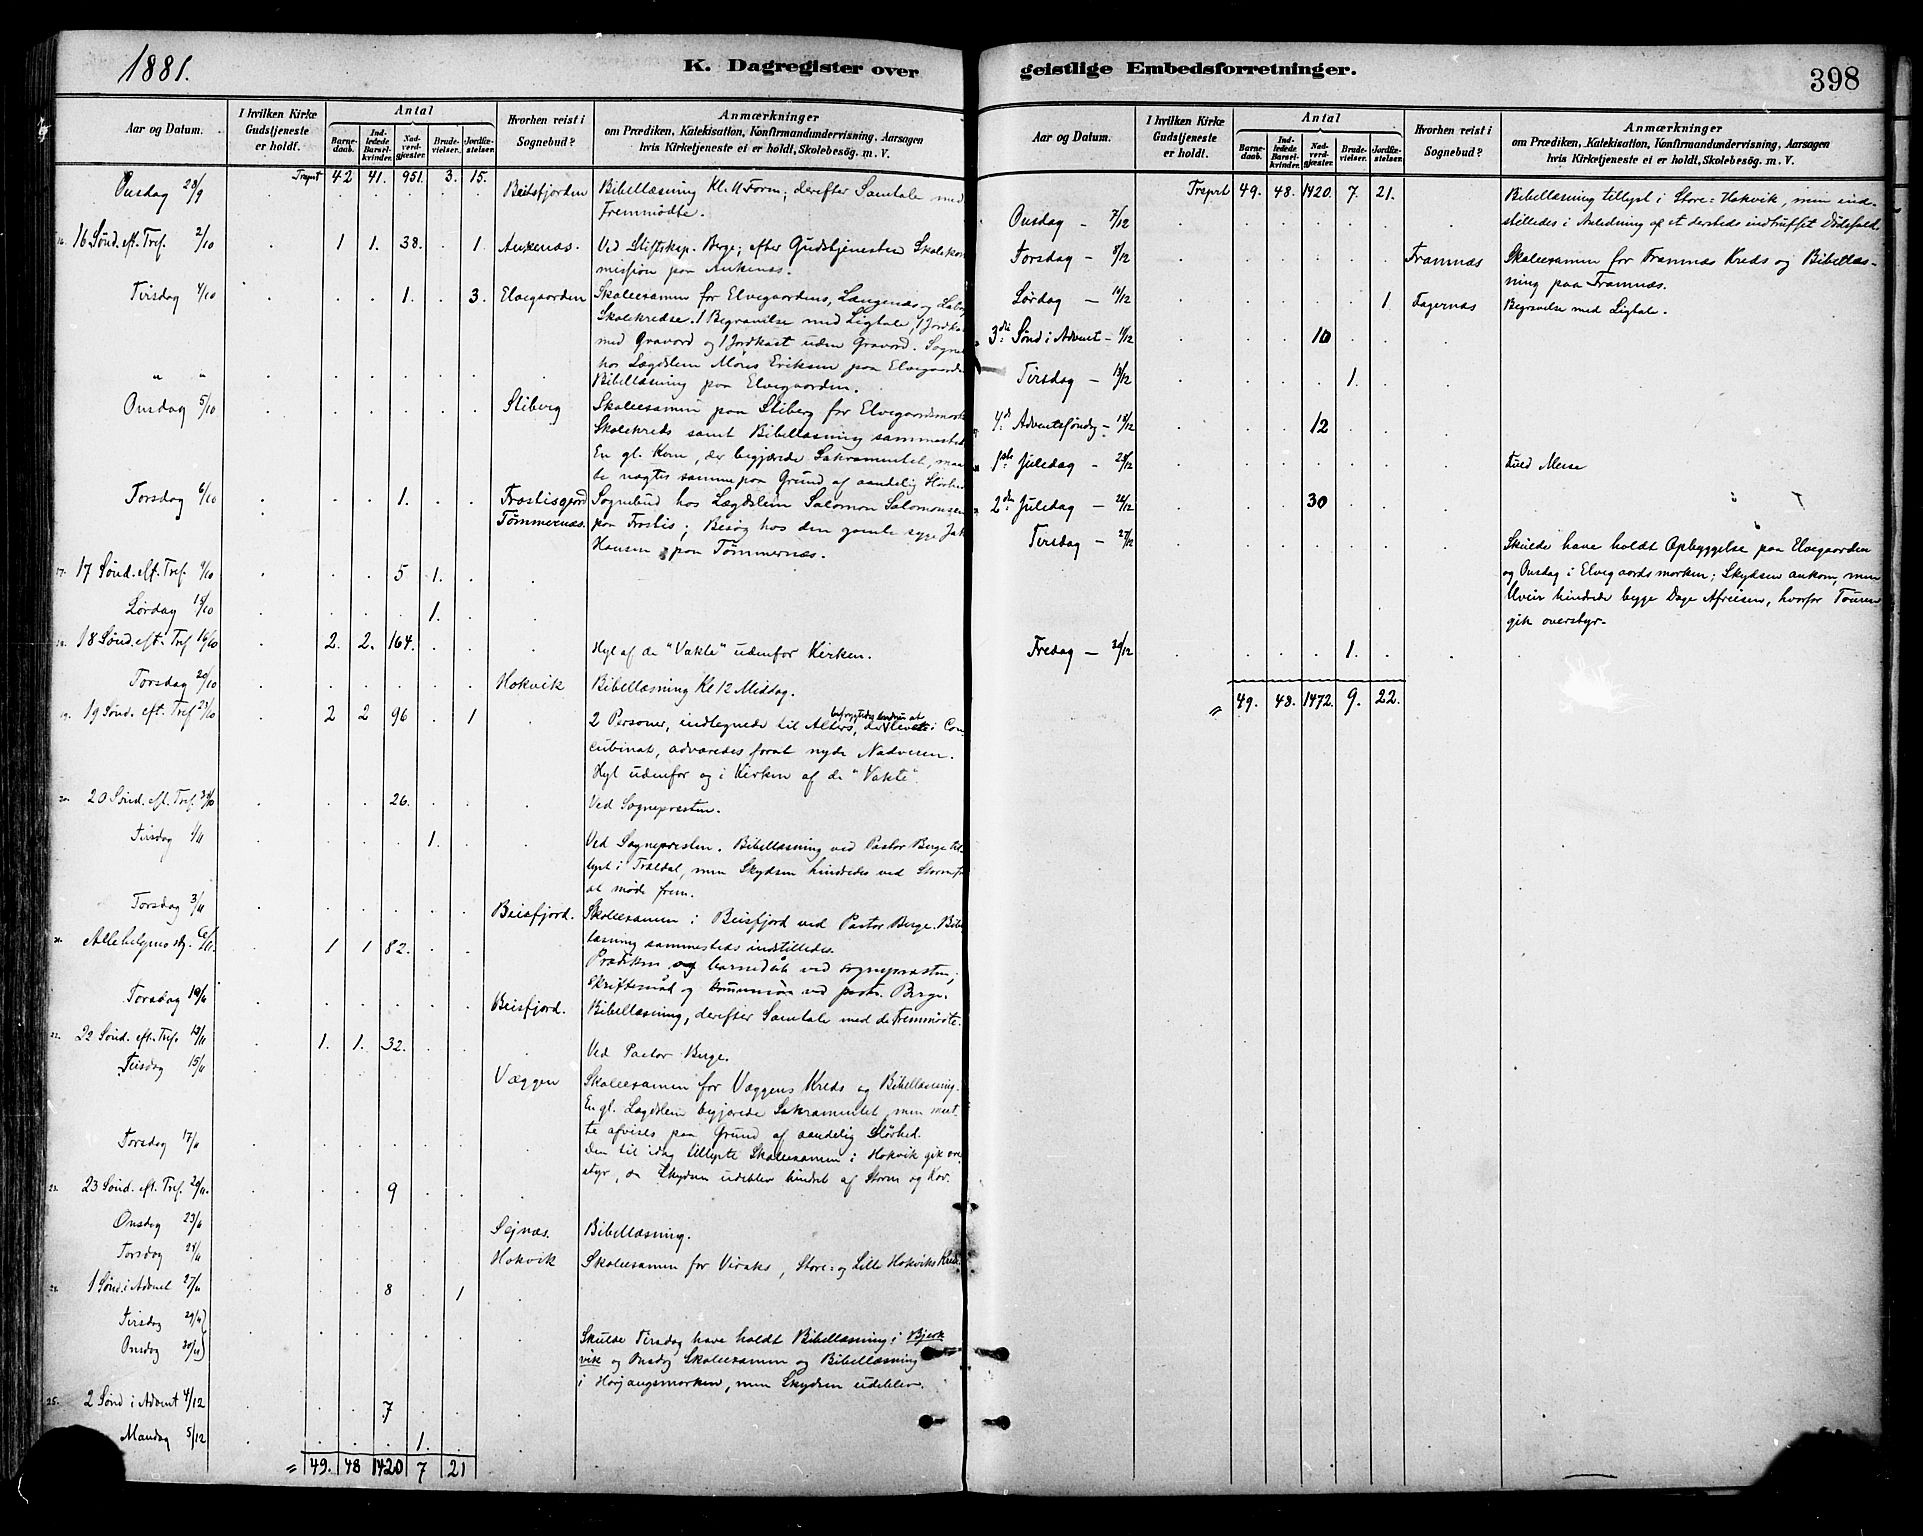 1881.
K. Dagregister over
Aar og Datum.
I hvilken Kirke Gudstjeneste er holdt.
Antal
Barnedaab.
Indledede Barselkvinder.
Nadverdgjæster.
Brudevielser.
Jordfæstelser.
Hvorhen reist i Sognebud?
Anmærkninger
om Prædiken, Katekisation, Konfirmandundervisning, Aarsagen
hvis Kirketjeneste ei er holdt, Skolebesög. m. V.
Trsprt 42 41. 951. 3. 15.
Onsdag 28/9 Beisfjorden Bibellæsning Kl. 11 Form; derefter Samtale med
Fremmødte.
16 Sønd. eft. Tref. 2/10 1 1. 38. 1. Ankenæs. Ved Stiftskap. Berge; efter Gudstjenesten Skolekom
mission paa Ankenæs.
Tirsdag 4/10 1. 3. Elvegaarden Skoleexamen for Elvegaardens, Længenæs og
Skolekredse. 1 Begravelse med Ligtale, 1 Jordkast
med Gravord og 1 Jordkast uden Gravord.
hos Lægdslem Eriksen paa Elvegaarden
" " Bibellæsning paa Elvegaarden.
Onsdag 5/10 Stiberg Skoleexamen paa Stiberg for Elvegaardsmark
Skolekreds samt Bibellæsning sammested
En gl. Kone, der begjærede Sakramentet, maa
te nægtes samme paa Grund af aandelig Sløvhed
Torsdag 6/10 1. Sognebud hos Lægdslem Salomon Salomonsen
Tømmernæs. paa ; Besøg hos den gamle syge
Hansen paa Tømmernæs.
17. 17 Sønd. eft. Tref. 9/10 5 1.
Lørdag 15/10 1.
18. 18 Sønd. eft. Tref 16/10 2. 2. 164. Hyl af de "Vakte" udenfor Kirken.
Torsdag 20/10 Hokvik Bibellæsning Kl 12 Middag.
19. 19 Sønd. eft. Tref 23/10 2 2 96 1 2 Personer, indtegnede til Alters, der levede i Con-
cubinat, advaredes forat nyde Nadveren.
Hyl udenfor og i Kirken af de "Vakte".
20. 20 Sønd. eft. Tref 30/10 26. Ved Sognepresten.
Tirsdag 1/11 1. Ved Sognepresten. Bibellæsning ved Pastor Berge til-
lyst i Traldal, men Skydsen hindredes ved Storm
at møde frem.
Torsdag 3/11 Beisfjord. Skoleexamen i Beisfjord ved Pastor Berge.
læsning sammesteds indstilledes.
Allehelgensdg. 6/11. 1 1 82. Prædiken og barnedåb ved sognepræsten;
skriftemål og kommunion ved pastr. Berge.
Torsdag 10/11 Beisfjord. Bibellæsning, derefter Samtale med de Fremmødte.
22. 22 Sønd. eft. Tref. 13/11 1. 1. 32. Ved Pastor Berge.
Tirsdag 15/11 Væggen Skoleexamen for Væggens Kreds og Bibellæsning.
En gl. Lægdslem begjærede Sakramentet, men maat-
te afvises paa Grund af aandelig Sløvhed.
Torsdag 17/11 Den til idag tillyste Skoleexamen i Hokvik gik over
styr, da Skydsen udeblev hindret af Storm og Kov.
23. 23 Sønd. eft. Tref. 20/11. 9
Onsdag 23/11 Sejnæs. Bibellæsning.
Torsdag 24/11 Hokvik Skoleexamen for Viraks, Store- og Lille Hokviks
1 Sønd. i Advent 27/11 8 1
Tirsdag 29/11
Onsdag 30/11 Skulde Tirsdag have holdt Bibellæsning i Bjerk
vik og Onsdag Skoleexamen og Bibellæsning
i Herjangsmarken, men Skydsen udeblev.
25. 2 Sønd i Advent 4/12 7
Mandag 5/12 1.
49. 48 1420 7 21
geistlige Embedsforretninger.
398
Aar og Datum.
I hvilken Kirke Gudstjeneste er holdt.
Antal
Barnedaab.
Indledede Barselkvinder.
Nadverdgjæster.
Brudevielser.
Jordfæstelser.
Hvorhen reist i Sognebud?
Anmærkninger
om Prædiken, Katekisation, Konfirmandundervisning, Aarsagen
hvis Kirketjeneste ei er holdt, Skolebesög. m. V.
Trsprt 49. 48. 1420. 7 21.
Onsdag - 7/12 Bibellæsning tillyst i Store-Hokvik, men ind-
stilledes i Anledning af et dersteds indtruffet Dødsfald.
Torsdag - 8/12 Framnæs Skoleexamen for Framnæs Kreds og Bibellæs-
ning paa Framnæs.
Lørdag - 10/12 1 Fagernæs Begravelse med Ligtale.
3die Sønd i Advent - 11/12 10
Tirsdag - 13/12 1.
4de Adventssøndg - 18/12 12
1ste Juledag - 25/12 Fuld Messe
2den Juledag - 26/12 30 "
Tirsdag - 27/12 Skulde have holdt Opbyggelse paa Elvegaarden
og Onsdag i Elvegaardsmarken; Skydsen ankom, men
Uveir hindrede begge Dage Afreisen, hvorfor Touren
gik overstyr.
Fredag - 30/12 1.
49. 48. 1472. 9. 22.